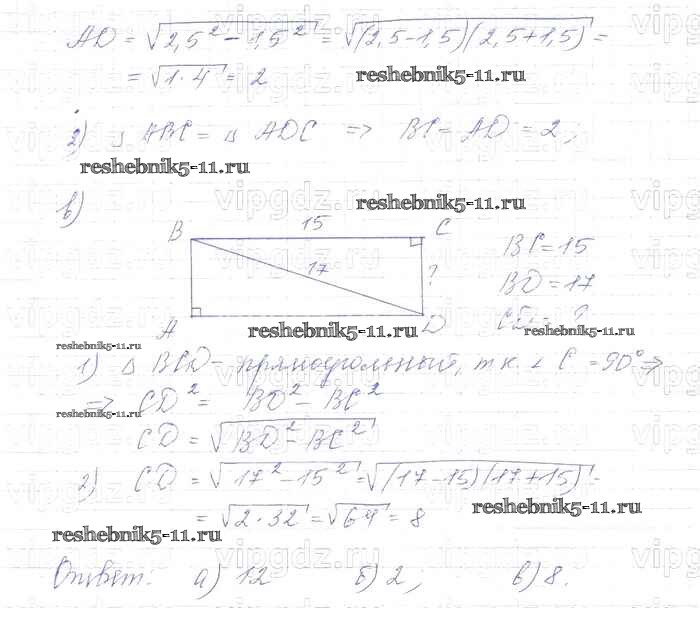 AD = √(2,5² - 1,5²) = √((2,5-1,5)(2,5+1,5)) =
= √(1·4) = 2
reshebnik5-11.ru
2) △ ABC = △ ADC => BC = AD = 2;
reshebnik5-11.ru
в)
reshebnik5-11.ru
15
B C
BC = 15
17 ?
BD = 17
A D
CD = ?
reshebnik5-11.ru
reshebnik5-11.ru
reshebnik5-11.ru
1) △ BCD - прямоугольный, т.к. ∠ C = 90° =>
=> CD² = BD² - BC²
reshebnik5-11.ru
CD = √(BD² - BC²)
2) CD = √(17² - 15²) = √((17-15)(17+15)) =
reshebnik5-11.ru
= √(2·32) = √64 = 8
reshebnik5-11.ru
Ответ: а) 12 б) 2; в) 8.
vipgdz.ru